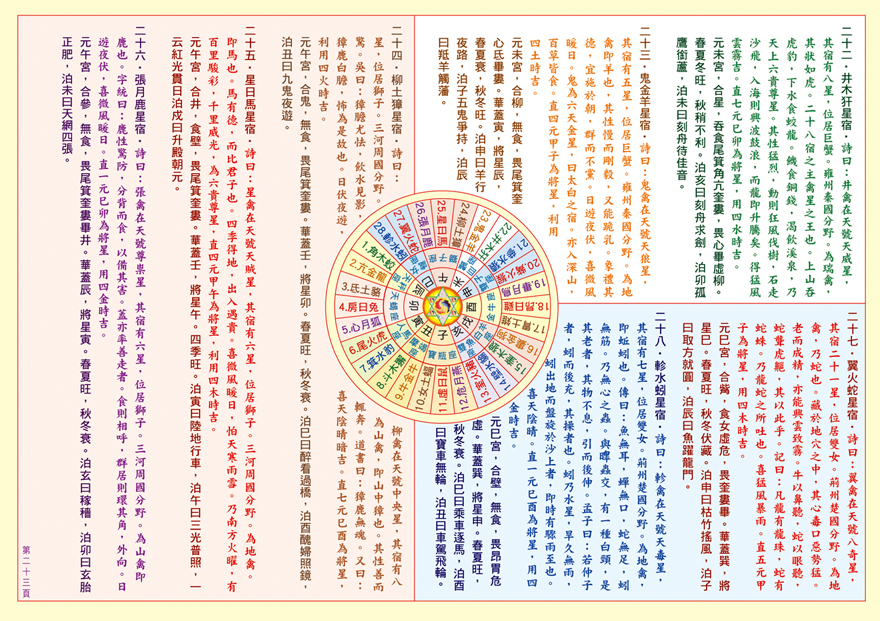 二十二．井木犴星宿．詩曰：井禽在天號天威星，
其宿有八星，位居巨蟹。雍州秦國分野。為瑞禽，
其狀如虎。二十八宿之主禽星之王也。上山吞
虎豹，下水食蛟龍。饑食銅錢，渴飲溪泉，乃
天上六貴尊星。其性猛烈，動則狂風伐樹，石走
沙飛，入海則興波鼓浪，而龍即升騰矣。得猛風
雲霧吉。直七元巳卯為將星，用四水時吉。
元未宮，合星，吞食尾箕角亢奎婁，畏心畢虛柳。
春夏冬旺，秋稍不利。泊亥曰刻舟求劍，泊卯孤
鷹銜蘆，泊未曰刻舟待佳音。
二十三．鬼金羊星宿．詩曰：鬼禽在天號天狼星，
其宿有五星，位居巨蟹。雍州秦國分野。為地
禽即羊也，其性慢而剛毅，又能跪乳。象禮其
德，宜施於朝，群而不黨。日遊夜伏，喜微風
暖日。鬼為六天金星，曰太白之宿。亦入深山，
百草皆食。直四元甲子為將星，利用
四土時吉。
元未宮，合柳，無食，畏尾箕奎
心氐畢婁。華蓋寅，將星辰，
春夏衰，秋冬旺。泊申曰羊行
夜路，泊子五鬼爭持，泊辰
曰羝羊觸藩。
二十四．柳土獐星宿．詩曰：
柳禽在天號中央星，其宿有八
星，位居獅子。三河周國分野。
為山禽，即山中獐也。其性善而
驚。吳曰：獐膽尤怯，飲水見影，
輒奔。道書曰：獐鹿無魂。又曰：
獐鹿白膽，怖為是故也。日伏夜遊，
喜天陰晴暗吉。直七元巳酉為將星，
利用四火時吉。
元午宮，合鬼，無食，畏尾箕奎婁。華蓋壬，將星卯。春夏旺，秋冬衰。泊巳曰醉看過橋，泊酉醜婦照鏡，
泊丑曰九鬼夜遊。
二十五．星日馬星宿．詩曰：星禽在天號天賊星，其宿有六星，位居獅子。三河周國分野。為地禽。
即馬也。馬有德，而比君子也。四季得地，出入遇貴。喜微風暖日，怕天寒雨雲。乃南方火曜，有
百里駿彩，千里威光，為六貴尊星，直四元甲午為將星，利用四木時吉。
元午宮，合井，食壁，畏尾箕奎婁。華蓋壬，將星午。四季旺。泊寅曰陸地行車，泊午曰三光普照，一
云紅光貫日泊戌曰升殿朝元。
二十六．張月鹿星宿．詩曰：張禽在天號尊祟星，其宿有六星，位居獅子。三河周國分野。為山禽即
鹿也。字統曰：鹿性驚防，分背而食，以備其害。蓋亦率善走者。食則相呼，群居則環其角，外向。日
遊夜伏，喜微風暖日。直一元巳卯為將星，用四金時吉。
元午宮，合參，無食，畏尾箕奎婁畢井。華蓋辰，將星寅。春夏旺，秋冬衰。泊玄曰稼穡，泊卯曰玄胎
正肥，泊未曰天網四張。
二十七．翼火蛇星宿．詩曰：翼禽在天號八奇星，
其宿二十一星，位居雙女。荊州楚國分野。為地
禽，乃蛇也。藏於地穴之中，其心毒口惡勢猛。
老而成精，亦能興雲致霧。牛以鼻聽，蛇以眼聽，
蛇聾虎齆，其以此乎。記曰：凡龍有龍珠，蛇有
蛇蛛。乃龍蛇之所吐也。喜猛風暴雨。直五元甲
子為將星，用四木時吉。
元巳宮，合觜，食女虛危，畏奎婁畢。華蓋巽，將
星巳。春夏旺，秋冬伏藏。泊申曰枯竹搖風，泊子
曰取方就圓，泊辰曰魚躍龍門。
二十八．軫水蚓星宿．詩曰：軫禽在天號天毒星，
其宿有七星，位居雙女。荊州楚國分野。為地禽，
即蚯蚓也。傳曰：魚無耳，蟬無口，蛇無足，蚓
無筋。乃無心之蟲。與蟬螽交，有一種白頸，是
其老者，其物不息，引而後伸。孟子曰：若仲子
者，蚓而後充，其操者也。蚓乃水星，旱久無雨，
蚓出地而盤旋於沙上者，即時有驟雨至也。
喜天陰晴。直一元巳酉為將星，用四
金時吉。
元巳宮，合壁，無食，畏昂胃危
虛。華蓋巽，將星申。春夏旺，
秋冬衰。泊巳曰乘車逐馬，泊酉
曰寶車無輪，泊丑曰車駕飛輪。
1.角木蛟
2.亢金龍
3.氐土貉
4.房日兔
5.心月狐
6.尾火虎
7.箕水豹
8.斗木獬
9.牛金牛
10.女土蝠
11.虛日鼠
12.危月燕
13.室火豬
14.壁水貐
15.奎木狼
16.婁金狗
17.胃土雉
18.昴日雞
19.畢月烏
20.觜火猴
21.參水猿
22.井木犴
23.鬼金羊
24.柳土獐
25.星日馬
26.張月鹿
27.翼火蛇
28.軫水蚓
子
丑
寅
卯
辰
巳
午
未
申
酉
戌
亥
第二十三頁